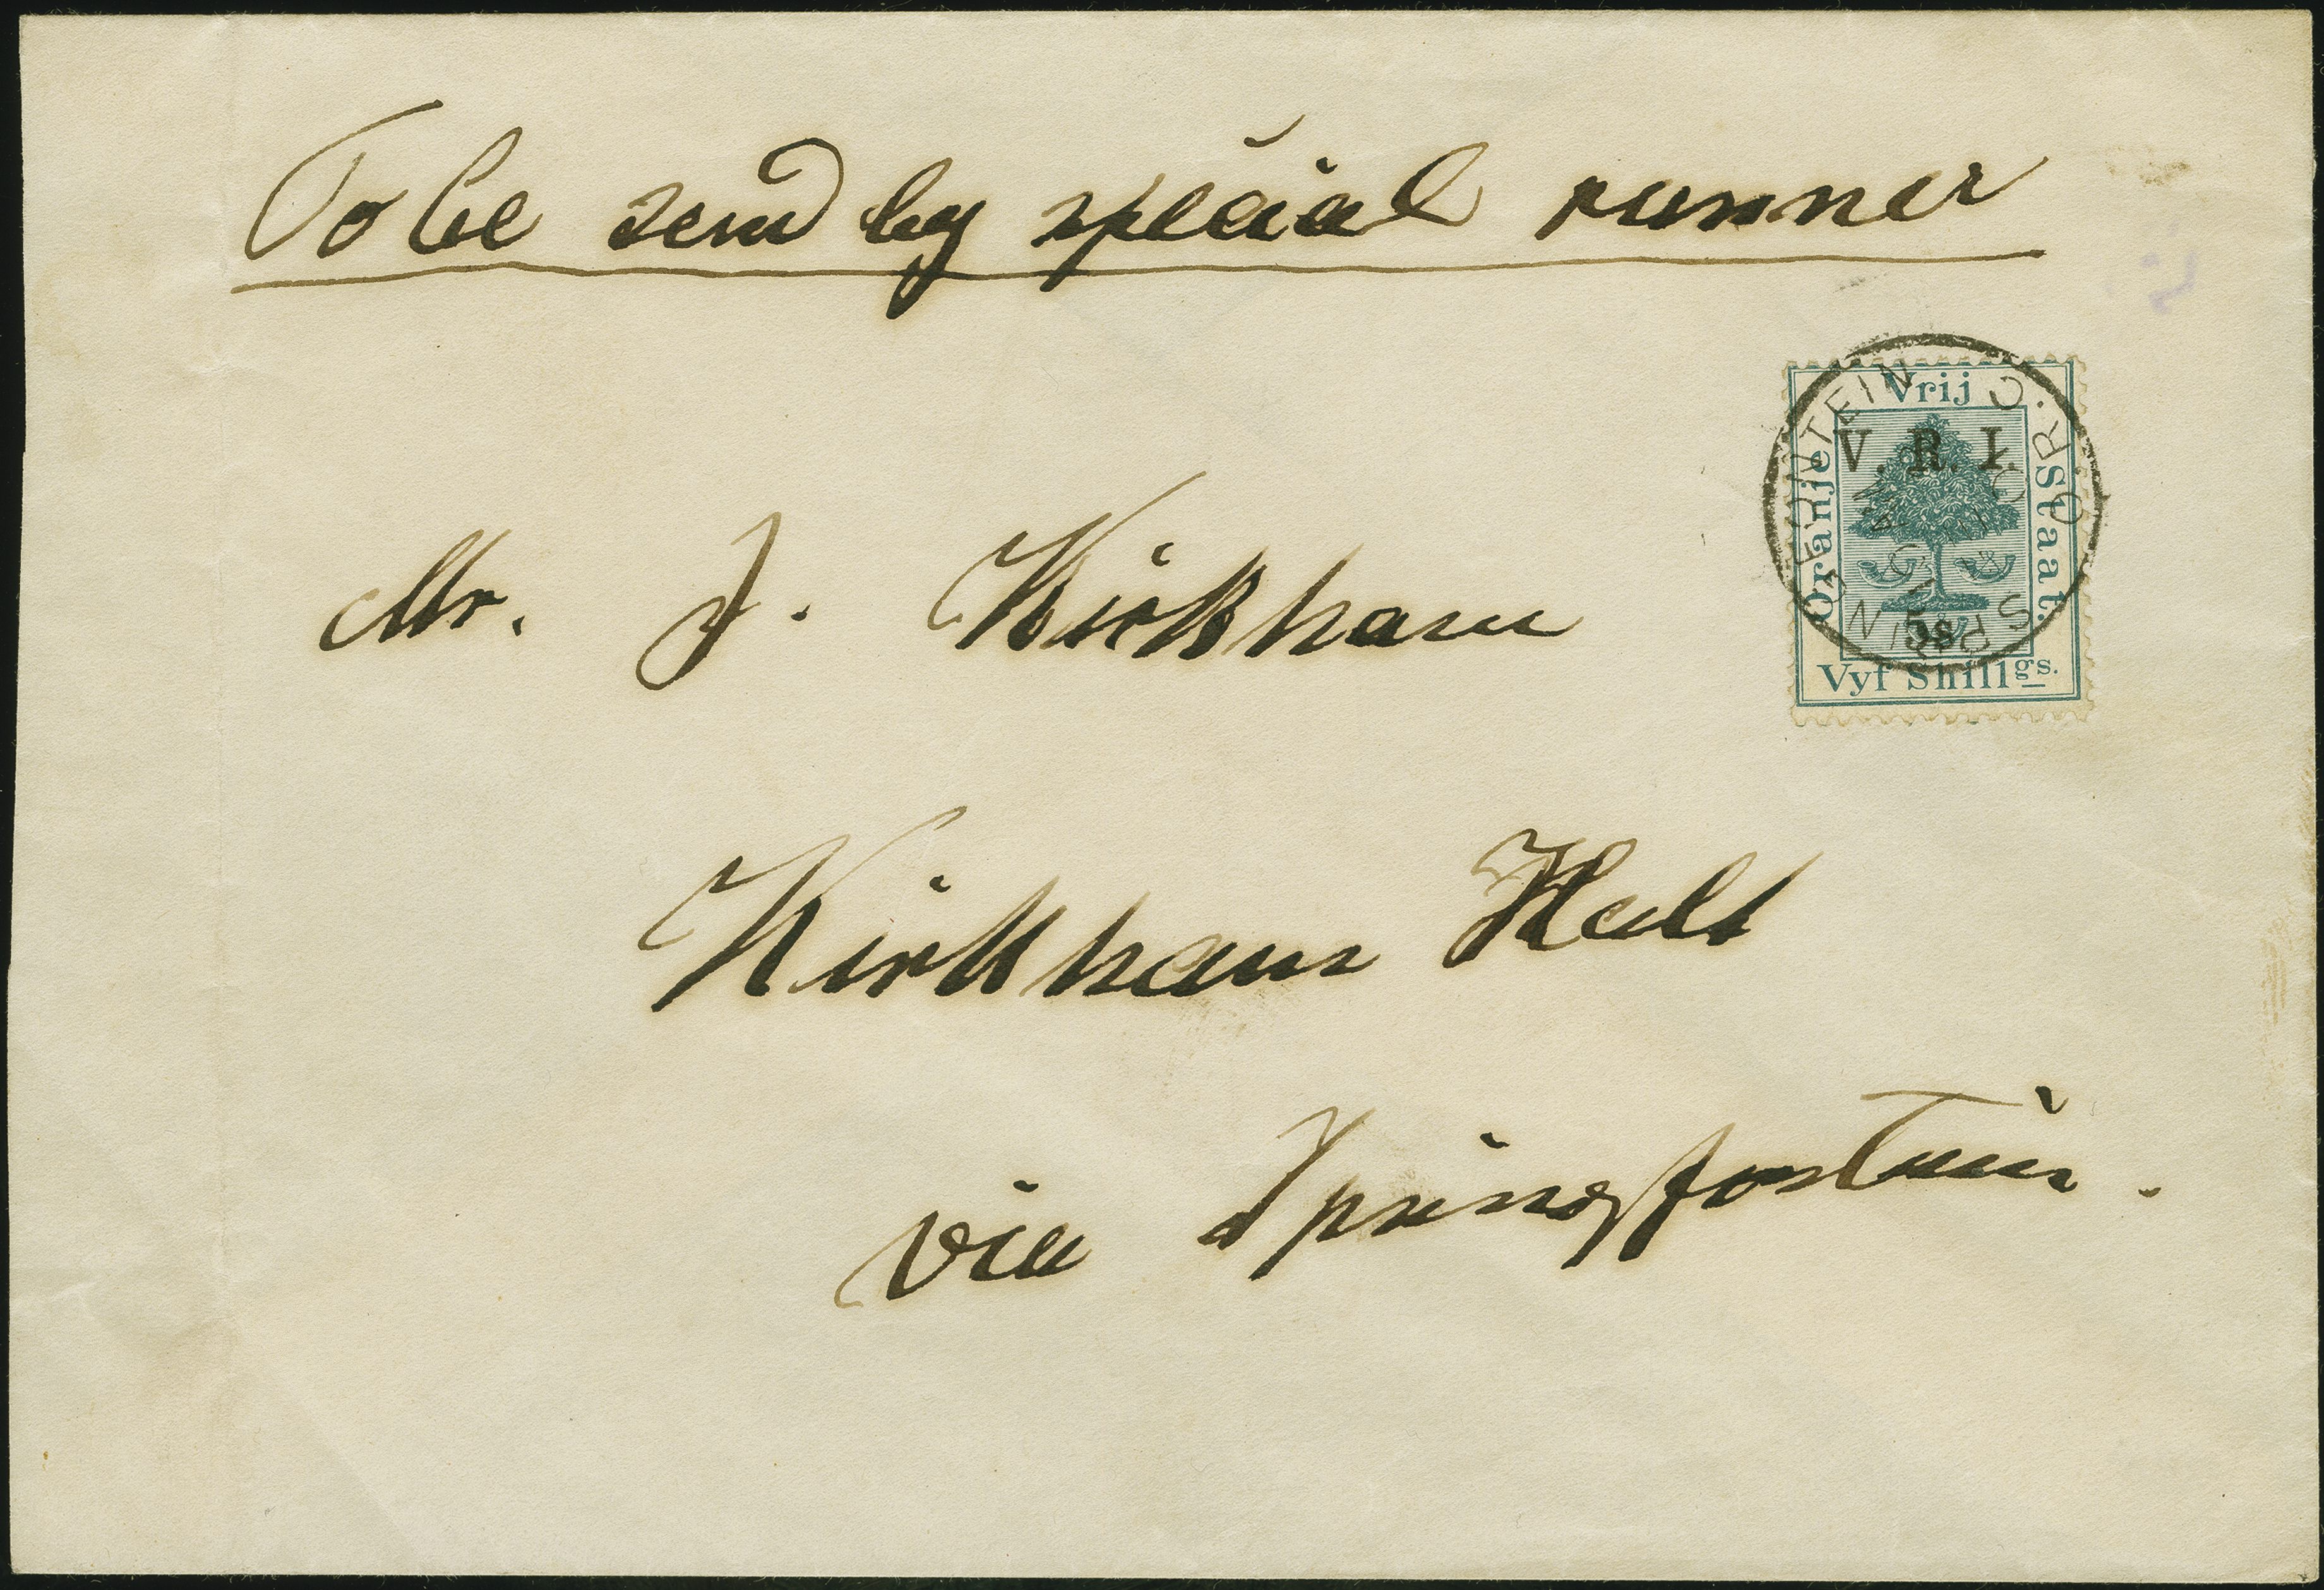 To be send by special runner
Vrij
Oranje
Staat.
V. R. I.
5s
Vyf Shillgs.
SPRINGFONTEIN
O.R.C.
Mr. J. Kirkham
Kirkham Halt
via Springfontein.